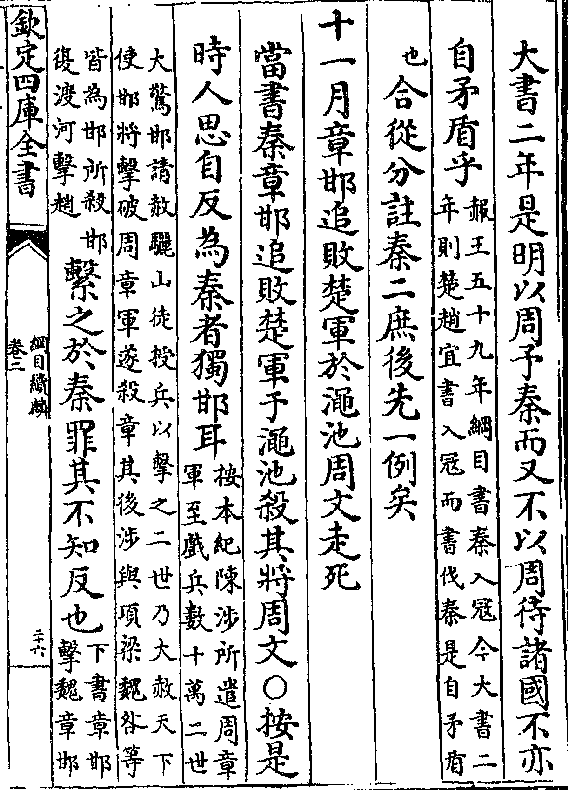 大書二年是明以周予秦而又不以周待諸國不亦
自矛盾乎
赧王五十九年綱目書秦入寇今大書二
年則楚趙宜書入寇而書伐秦是自矛盾
也合從分註秦二庶後先一例矣
十一月章邯追敗楚軍於澠池周文走死
當書秦章邯追敗楚軍于澠池殺其將周文○按是
時人思自反為秦者獨邯耳
按本紀陳涉所遣周章
軍至戲兵數十萬二世
大驚邯請赦驪山徒授兵以擊之二世乃大赦天下
使邯將擊破周章軍遂殺章其後涉與項梁魏咎等
皆為邯所殺邯
復渡河擊趙
繫之於秦罪其不知反也
下書章邯
擊魏章邯
欽定四庫全書
綱目續麟
卷三
二十六